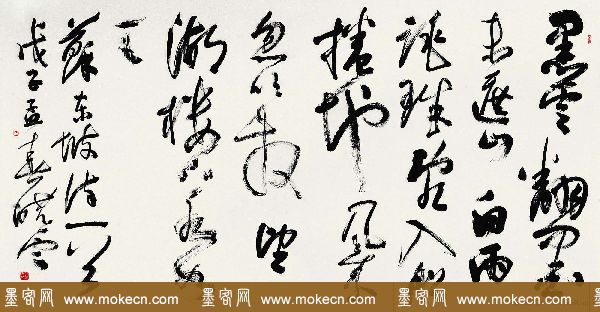 黑雲翻墨
未遮山白雨
跳珠亂入船
捲地風來
忽吹散望
湖樓下水如
天
蘇东坡诗一首
戊子孟春晓云
墨客网 www.mokecn.com 墨客网 www.mokecn.com 墨客网 www.mokecn.com